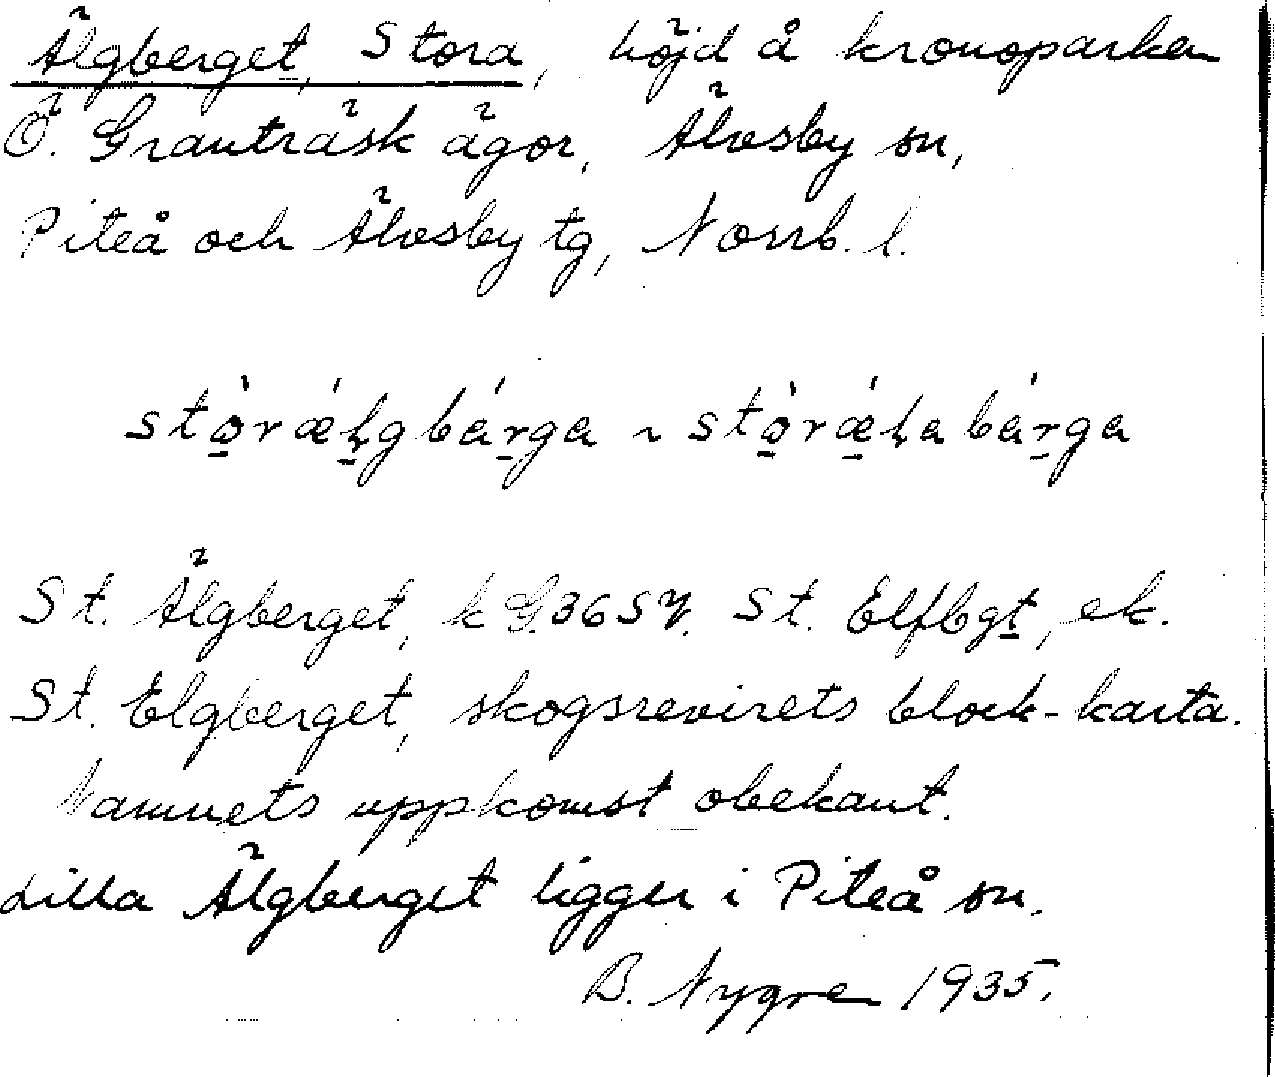 Älgberget, Stora, höjd å kronoparken
Ö. Granträsk ägor, Älvsby sn,
Piteå och Älvsby tg, Norrb. l.
stò̱ráéḷgbárga ~ stò̱rǽḷabárga
St. Älgberget, k G. 3657. St. Elfbgt, ek.
St. Elgberget, skogsrevirets block-karta.
Namnets uppkomst obekant.
Lilla Älgberget ligger i Piteå sn.
B. Nygren 1935.